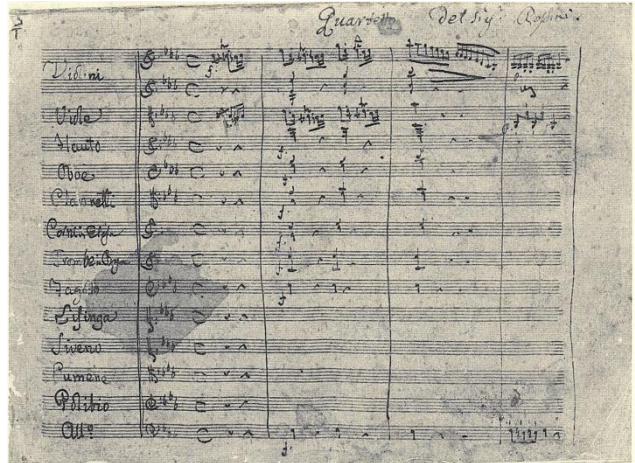 Quartetto Del Sig.r Rossini
Violini
Viole
Flauto
Oboe
Clarinetti
Corni in Elafa
Trombe in Elafa
Fagotto
Lisinga
Siveno
Eumene
Polibio
All.o